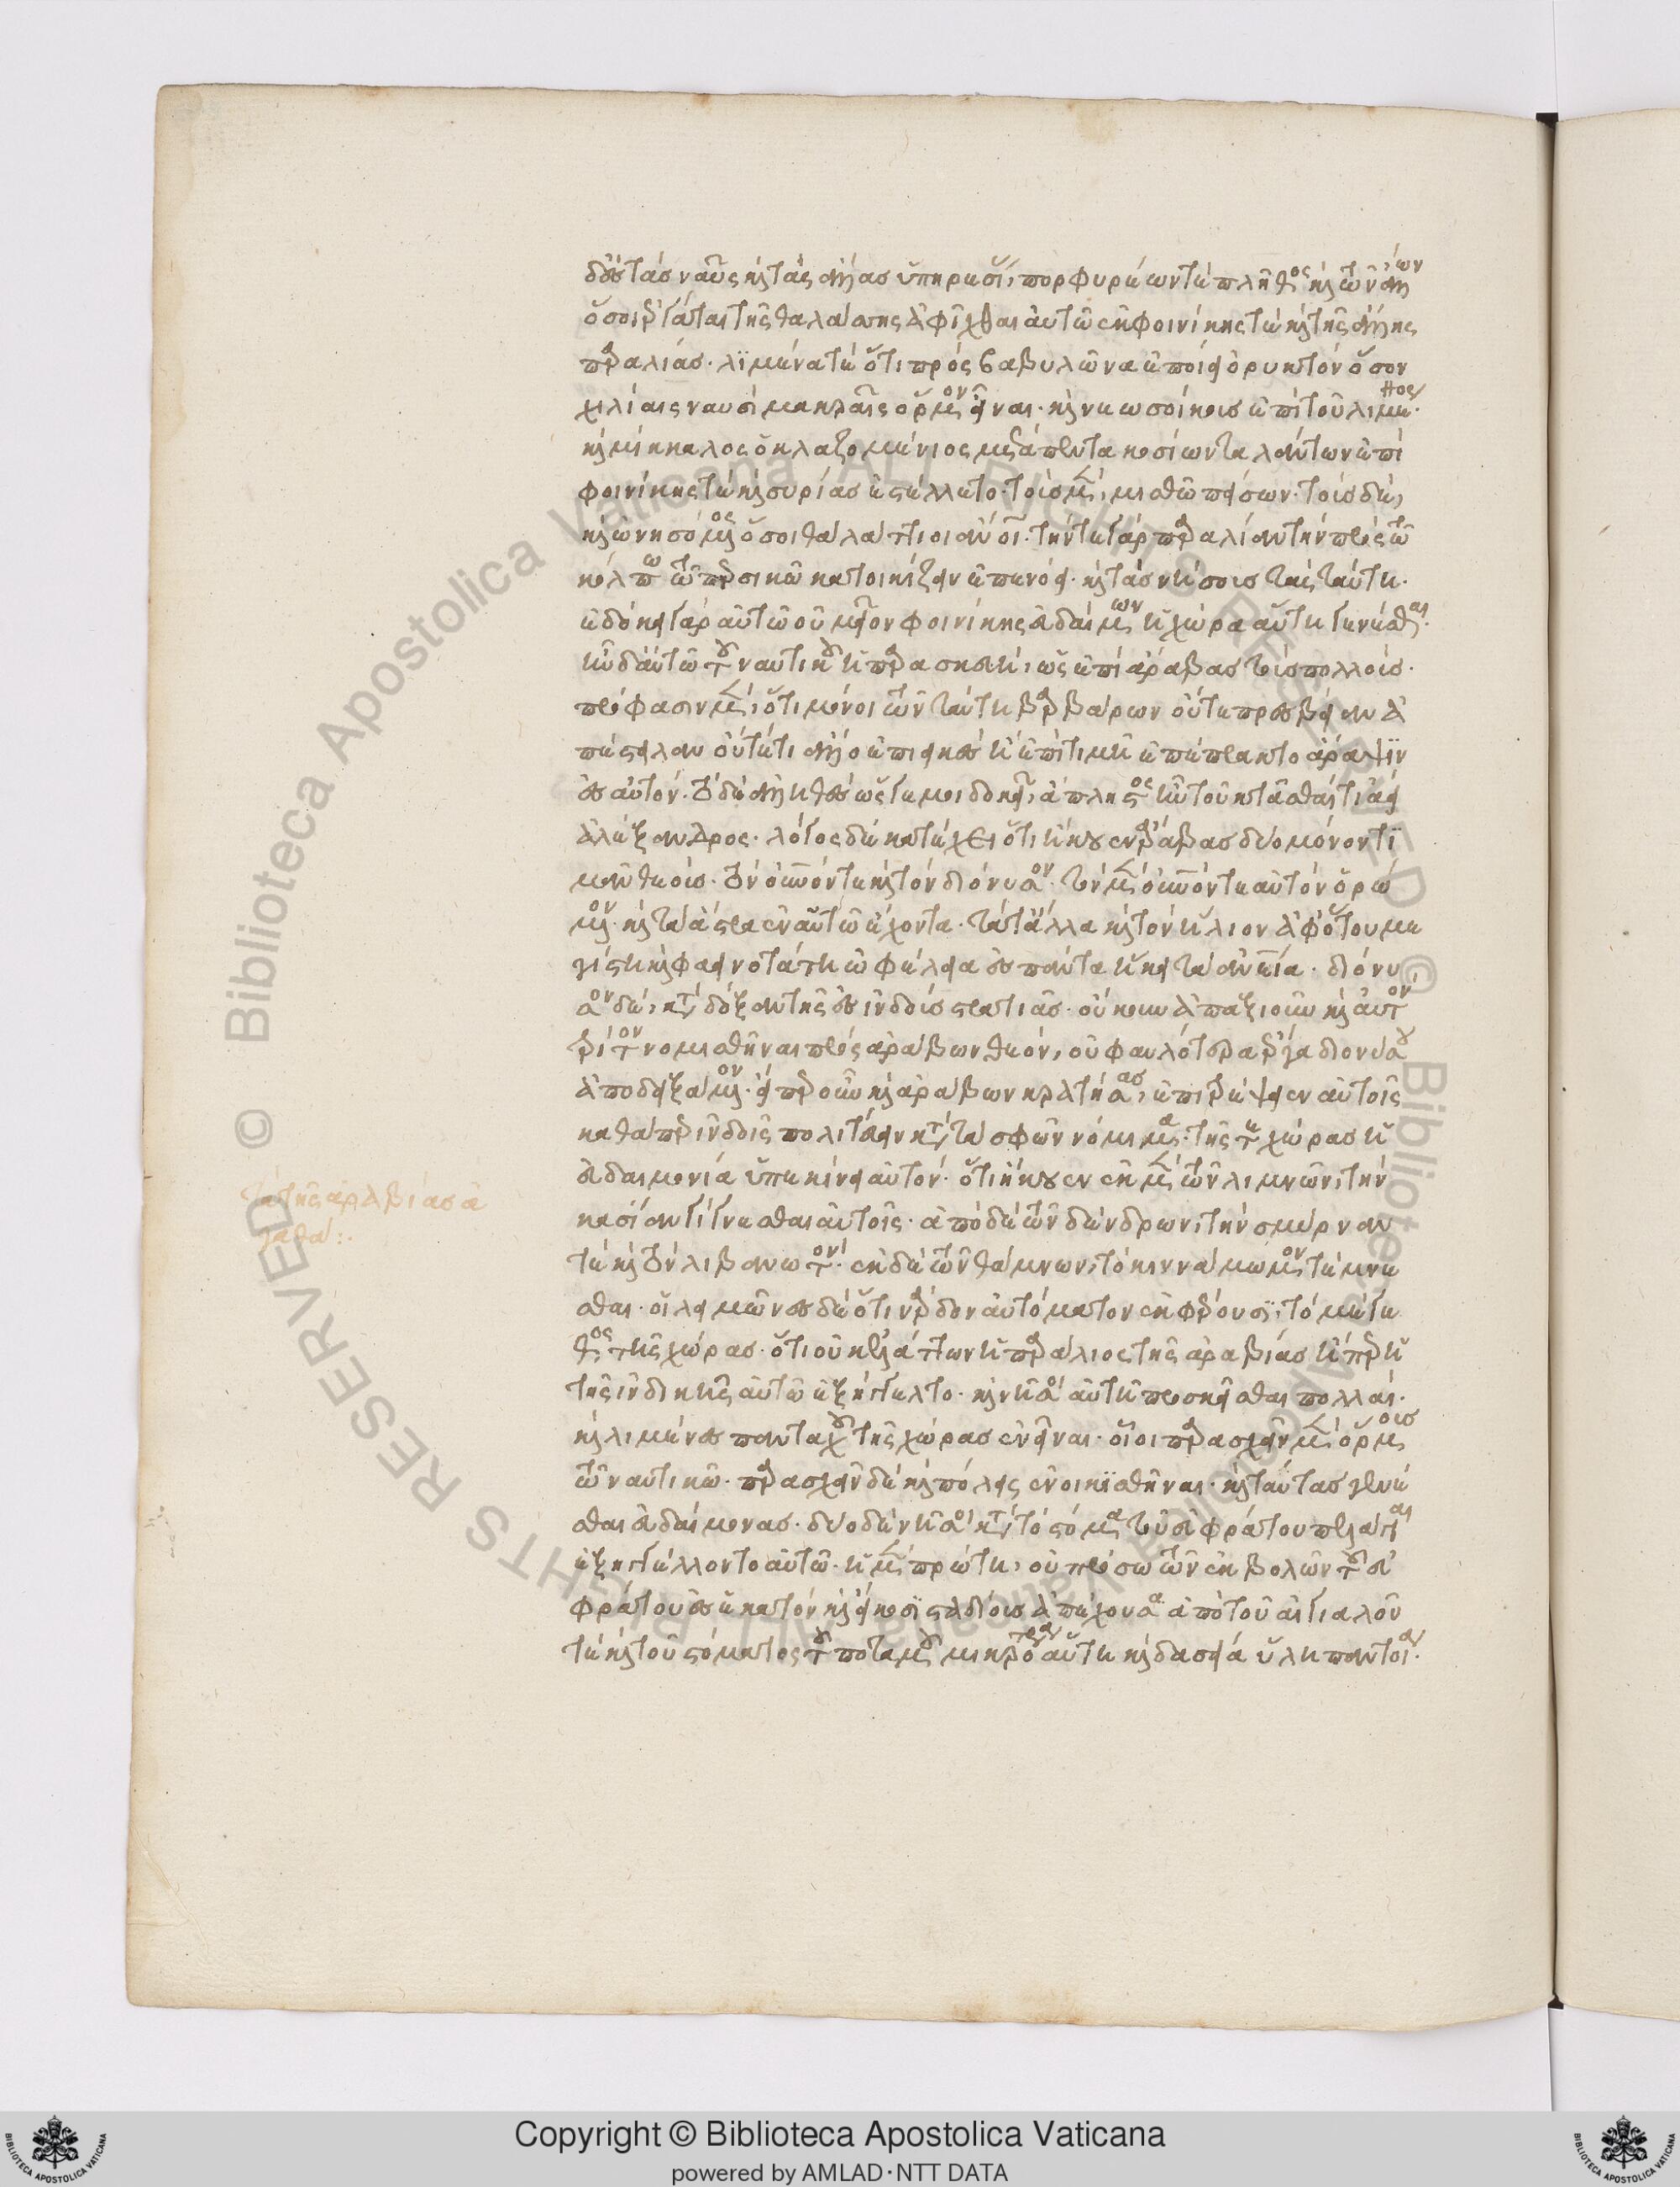 δὲ ἐς τὰς ναῦς καὶ τὰς ἄλλας ὑπηρεσίας, πορφυρέων τὲ πλῆθος καὶ τῶν ἄλλων
ὅσοι ἐργάται τῆς θαλάσσης ἀφῖχθαι αὐτῶ ἐκ φοινίκης τὲ καὶ τῆς ἄλλης
παραλίας· λιμένα τὲ ὅτι πρὸς βαβυλῶνα ἐποίει ὀρυκτὸν ὅσον
χιλίαις ναυσὶ μακραῖς ὅρμον εἶναι· καὶ νεωσοίκους ἐπὶ τοῦ λιμένος·
καὶ μίκκαλος ὁ κλαζομένιος μετὰ πεντακοσίων ταλάντων ἐπὶ
φοινίκης τὲ καὶ συρίας ἐστέλλετο· τοὺς μὲν, μισθῶ πείσων· τοὺς δὲ,
καὶ ὠνησόμενος ὅσοι θαλάττιοι ἄνθρωποι· τήν τε γὰρ παραλίαν τὴν πρὸς τῶ
κόλπω τῶ περσικῶ κατοικίζειν ἐπενόει· καὶ τὰς νήσους τὰς ταύτη·
ἐδόκει γὰρ αὐτῶ οὐ μεῖον φοινίκης εὐδαίμων ἡ χώρα αὕτη γενέσθαι·
ἦν δ' αὐτῶ τοῦ ναυτικοῦ ἡ παρασκευή, ὡς ἐπὶ ἄραβας τοὺς πολλούς·
πρόφασιν μὲν, ὅτι μόνοι τῶν ταύτη βαρβάρων οὔτε πρεσβείαν ἀ
πέστειλαν οὔτέ τι ἄλλο ἐπιεικὲς ἢ ἐπὶ τιμῆ ἐπέπρακτο ἄραψιν
ἐς αὐτόν· τὸ δὲ ἀληθὲς ὥς γε μοι δοκεῖ, ἄπληστος ἦν τοῦ κτᾶσθαί τι ἀεὶ
ἀλέξανδρος· λόγος δὲ κατέχει ὅτι ἤκουεν ἄραβας δύο μόνον τι
μᾶν θεούς· τὸν οὐρανόν τε καὶ τὸν διόνυσον· τὸν μὲν οὐρανόν τε αὐτὸν ὁρώ
μενον· καὶ τὰ ἄστρα ἐν αὑτῶ ἔχοντα· τά τε ἄλλα καὶ τὸν ἥλιον ἀφ' ὅτου με
γίστη καὶ φαεινοτάτη ὠφέλεια ἐς πάντα ἥκει τὰ ἀνθρώπεια· διόνυ
σον δὲ, κατὰ δόξαν τῆς ἐς ἰνδοὺς στρατιᾶς· οὔκουν ἀπαξιοῦν καὶ αὐτὸν
τρίτον νομισθῆναι πρὸς ἀράβων θεόν, οὐ φαυλότερα ἔργα διονύσου
ἀποδειξάμενον· εἴπερ οὖν καὶ ἀράβων κρατήσας, ἐπιτρέψειεν αὐτοῖς
καθάπερ ἰνδοῖς πολιτεύειν κατὰ τὰ σφῶν νόμιμα· τῆς τε χώρας ἡ
εὐδαιμονία ὑπεκίνει αὐτόν· ὅτι ἤκουεν ἐκ μὲν τῶν λιμνῶν, τὴν
κασίαν γίγνεσθαι αὐτοῖς· ἀπὸ δὲ τῶν δένδρων, τὴν σμύρναν
τὲ καὶ τὸν λιβανωτόν· ἐκ δὲ τῶν θάμνων, τὸ κιννάμωμον τέμνε
σθαι· οἱ λειμῶνες δὲ ὅτι νάρδον αὐτόματον ἐκφέρουσι, τὸ μέγε
θος τῆς χώρας· ὅτι οὐκ ἐλάττων ἡ παράλιος τῆς ἀραβίας ἤπερ ἡ
τῆς ἰνδικῆς αὐτῶ ἐξήγγελτο· καὶ νῆσοι αὐτῆ προσκεῖσθαι πολλαί·
καὶ λιμένες πανταχοῦ τῆς χώρας ἐνεῖναι· οἷοι παρασχεῖν μὲν ὅρμοις
τῶν ναυτικῶ· παρασχεῖν δὲ καὶ πόλεις ἐνοικισθῆναι· καὶ ταύτας γενέ
σθαι εὐδαίμονας· δύο δὲ νῆσοι κατὰ τὸ στόμα τοῦ εὐφράτου πελάγιαι
ἐξηγγέλλοντο αὐτῶ· ἡ μὲν πρώτη, οὐ πρόσω τῶν ἐκβολῶν τοῦ εὐ
φράτου ἐς ἑκατὸν καὶ εἴκοσι σταδίους ἀπέχουσα ἀπὸ τοῦ αἰγιαλοῦ
τὲ καὶ τοῦ στόματος τοῦ ποταμοῦ μικροτέρα αὕτη καὶ δασεῖα ὕλη παντοία·
τὰ τῆς ἀραβίας ἀ
γαθά:.
Copyright © Biblioteca Apostolica Vaticana
powered by AMLAD·NTT DATA